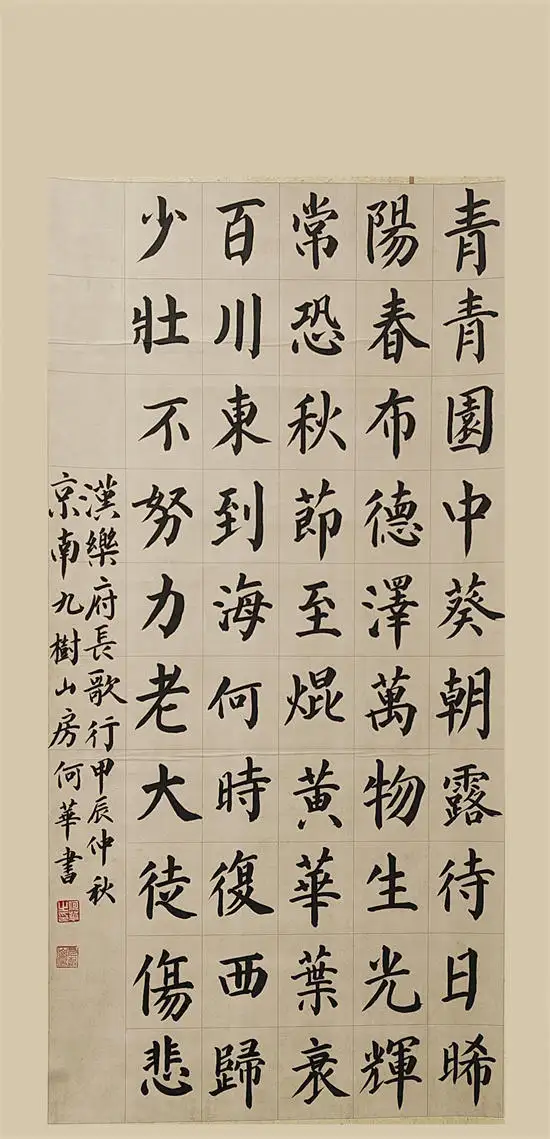 青青園中葵朝露待日晞
陽春布德澤萬物生光輝
常恐秋節至焜黃華葉衰
百川東到海何時復西歸
少壯不努力老大徒傷悲
漢樂府長歌行甲辰仲秋
京南九樹山房何華書